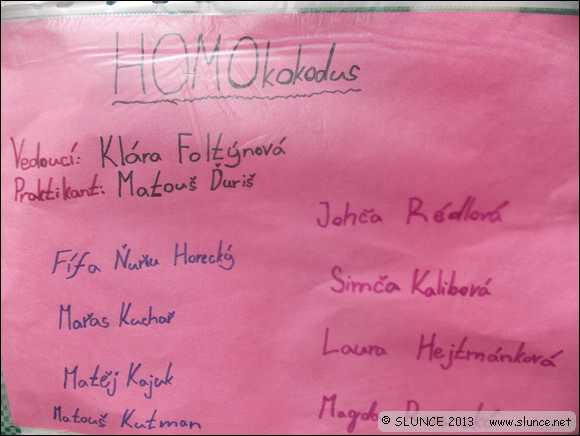 HOMOkokodus
Vedoucí: Klára Foltýnová
Praktikant: Matouš Ďuriš
Fífa Ňuňu Horecký
Mařas Kuchař
Matěj Kajuk
Matouš Kutman
Johča Rédlová
Simča Kalibová
Laura Hejtmánková
Magda
© SLUNCE 2013 www.slunce.net